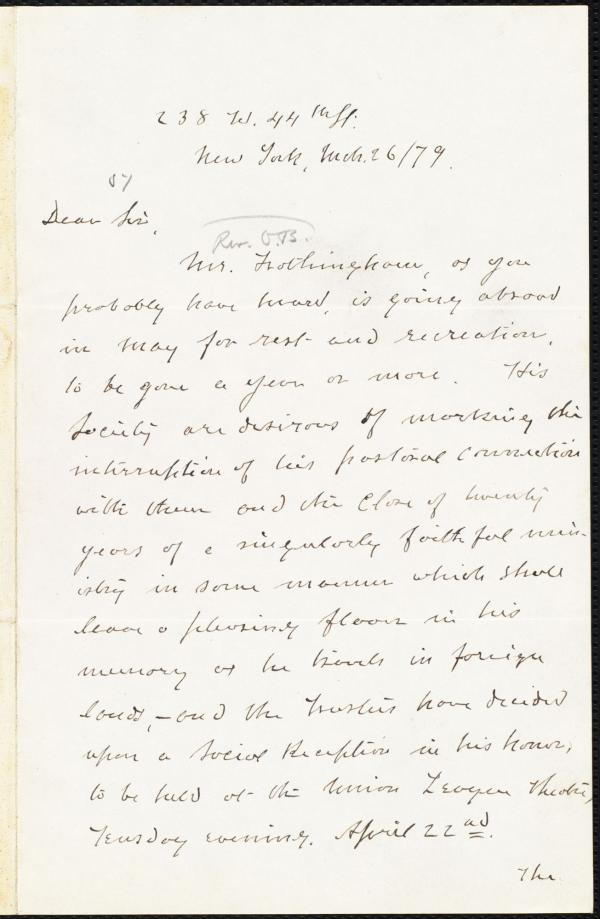 238 W. 44th St.
New York, Mch. 26/79.
57
Dear Sir,
Rev. O.B.
Mr. Frothingham, as you
probably have heard, is going abroad
in May for rest and recreation,
to be gone a year or more. His
Society are desirous of marking the
interruption of his pastoral connection
with them and the close of twenty
years of a singularly faithful min-
istry in some manner which shall
leave a pleasing flavor in his
memory as he travels in foreign
lands, – and the Trustees have decided
upon a Social Reception in his honor,
to be held at the Union League Theatre,
Tuesday evening, April 22nd.
The